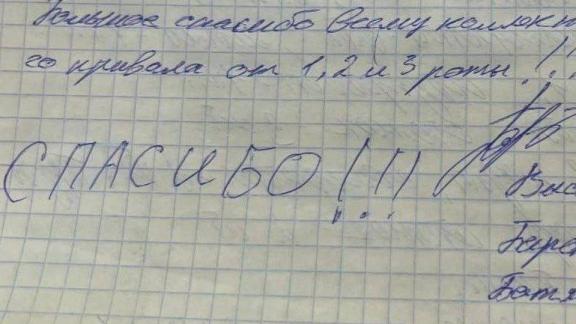 Большое спасибо всему коллек
го привала от 1, 2 и 3 роты!!!
СПАСИБО!!!